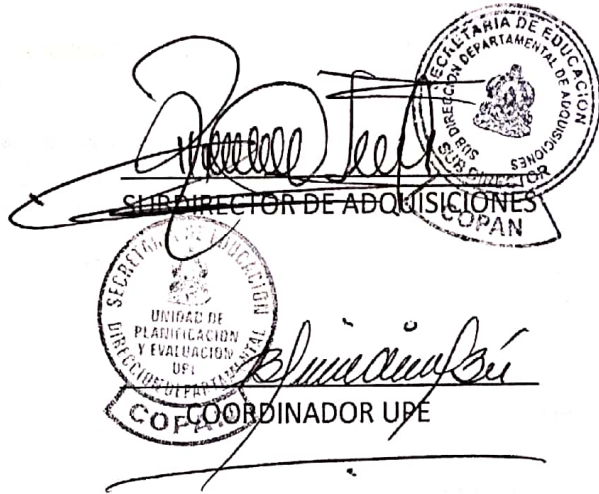 SECRETARIA DE EDUCACION
SUB DIRECCION DEPARTAMENTAL DE ADQUISICIONES
SUB DIRECTOR
COPAN
SUBDIRECTOR DE ADQUISICIONES
SECRETARIA DE EDUCACION
UNIDAD DE
PLANIFICACION
Y EVALUACION
DIRECCION DEPARTAMENTAL
COPAN
COORDINADOR UPE